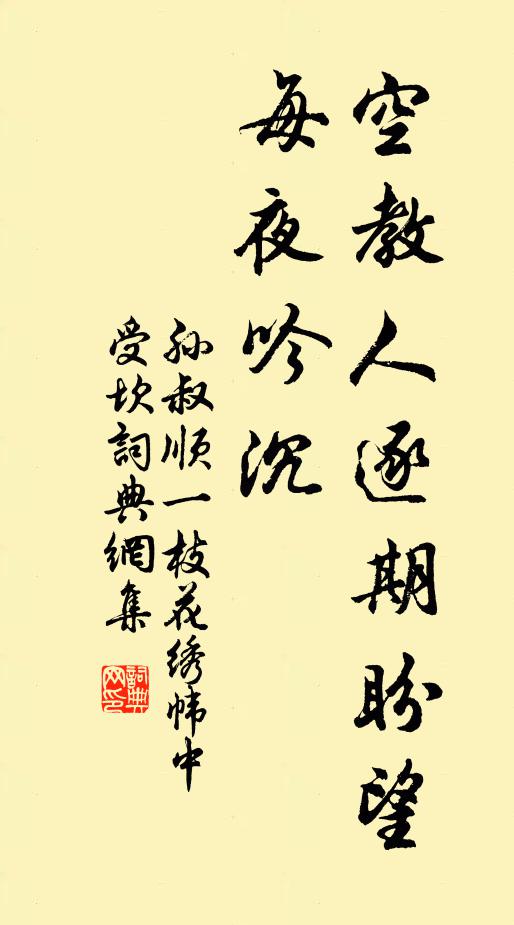 空教人逐期盼望
每夜吟沉
孙叔顺一枝花绣帏中
受坎詞典網集
詞典
网印